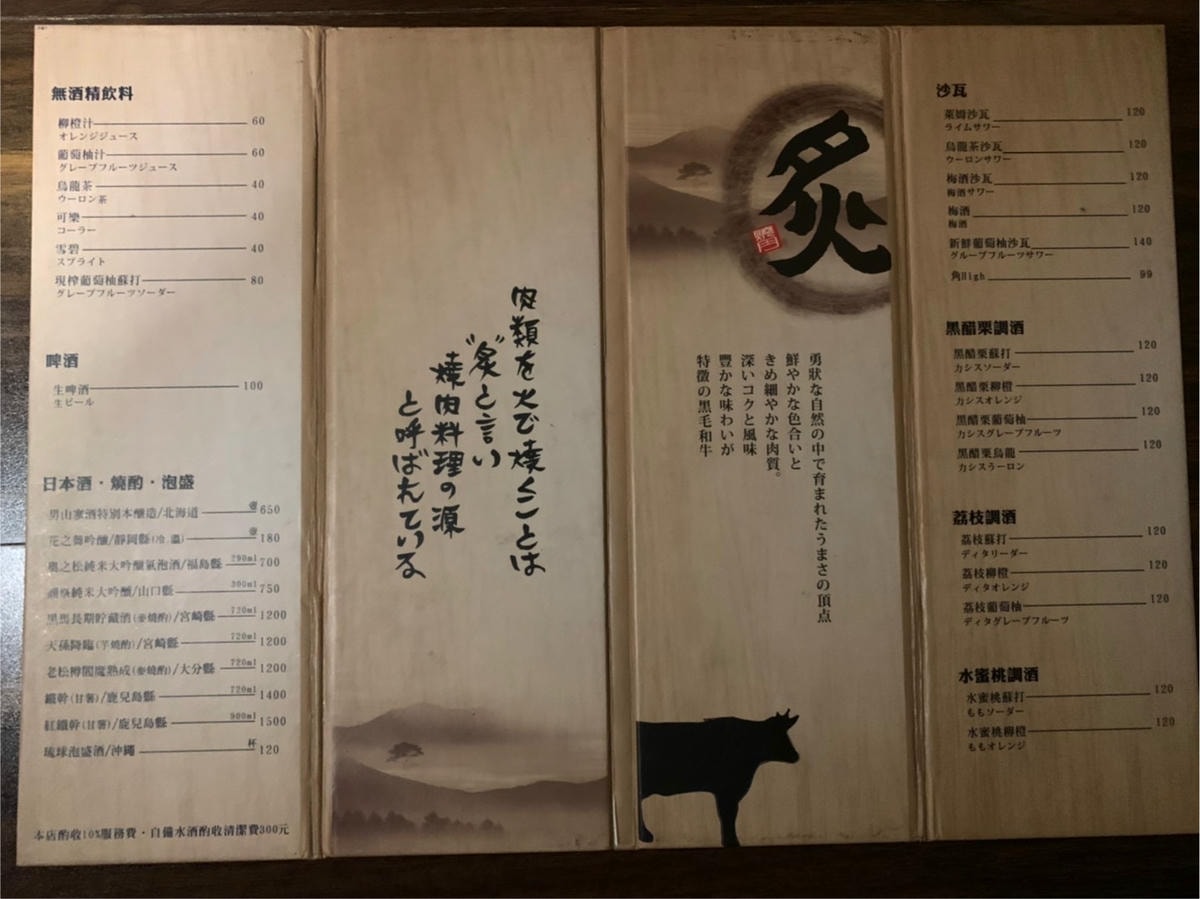 無酒精飲料
柳橙汁 60
オレンジジュース
葡萄柚汁 60
グレープフルーツジュース
烏龍茶 40
ウーロン茶
可樂 40
コーラー
雪碧 40
スプライト
現榨葡萄柚蘇打 80
グレープフルーツソーダー
啤酒
生啤酒 100
生ビール
日本酒・燒酌・泡盛
男山蜜酒特別本釀造/北海道 650
花之舞吟釀/靜岡縣(冷.溫) 180
奧之松純米大吟釀氣泡酒/福島縣 290ml 700
純米大吟釀/山口縣 300ml 750
黑馬長期貯藏酒(麥燒酌)/宮崎縣 720ml 1200
天孫降臨(芋燒酌)/宮崎縣 720ml 1200
老松樽閻魔熟成(麥燒酌)/大分縣 720ml 1200
鐵幹(甘薯)/鹿兒島縣 720ml 1400
紅鐵幹(甘薯)/鹿兒島縣 900ml 1500
琉球泡盛酒/沖繩 杯 120
本店酌收10%服務費・自備水酒酌收清潔費300元
肉類を火で燒くことは
"炙"と言い
燒肉料理の源
と呼ばれている
炙
燒肉
勇狀な自然の中で育まれたうまさの頂点
鮮やかな色合いと
きめ細やかな肉質。
深いコクと風味
豐かな味わいが
特徵の黒毛和牛
沙瓦
萊姆沙瓦 120
ライムサワー
烏龍茶沙瓦 120
ウーロンサワー
梅酒沙瓦 120
梅酒サワー
梅酒 120
梅酒
新鮮葡萄柚沙瓦 140
グループフルーツサワー
角High 99
黑醋栗調酒
黑醋栗蘇打 120
カシスソーダー
黑醋栗柳橙 120
カシスオレンジ
黑醋栗葡萄柚 120
カシスグレープフルーツ
黑醋栗烏龍 120
カシスうーロン
荔枝調酒
荔枝蘇打 120
ディタリーダー
荔枝柳橙 120
ディタオレンジ
荔枝葡萄柚 120
ディタグレープフルーツ
水蜜桃調酒
水蜜桃蘇打 120
ももソーダー
水蜜桃柳橙 120
ももオレンジ